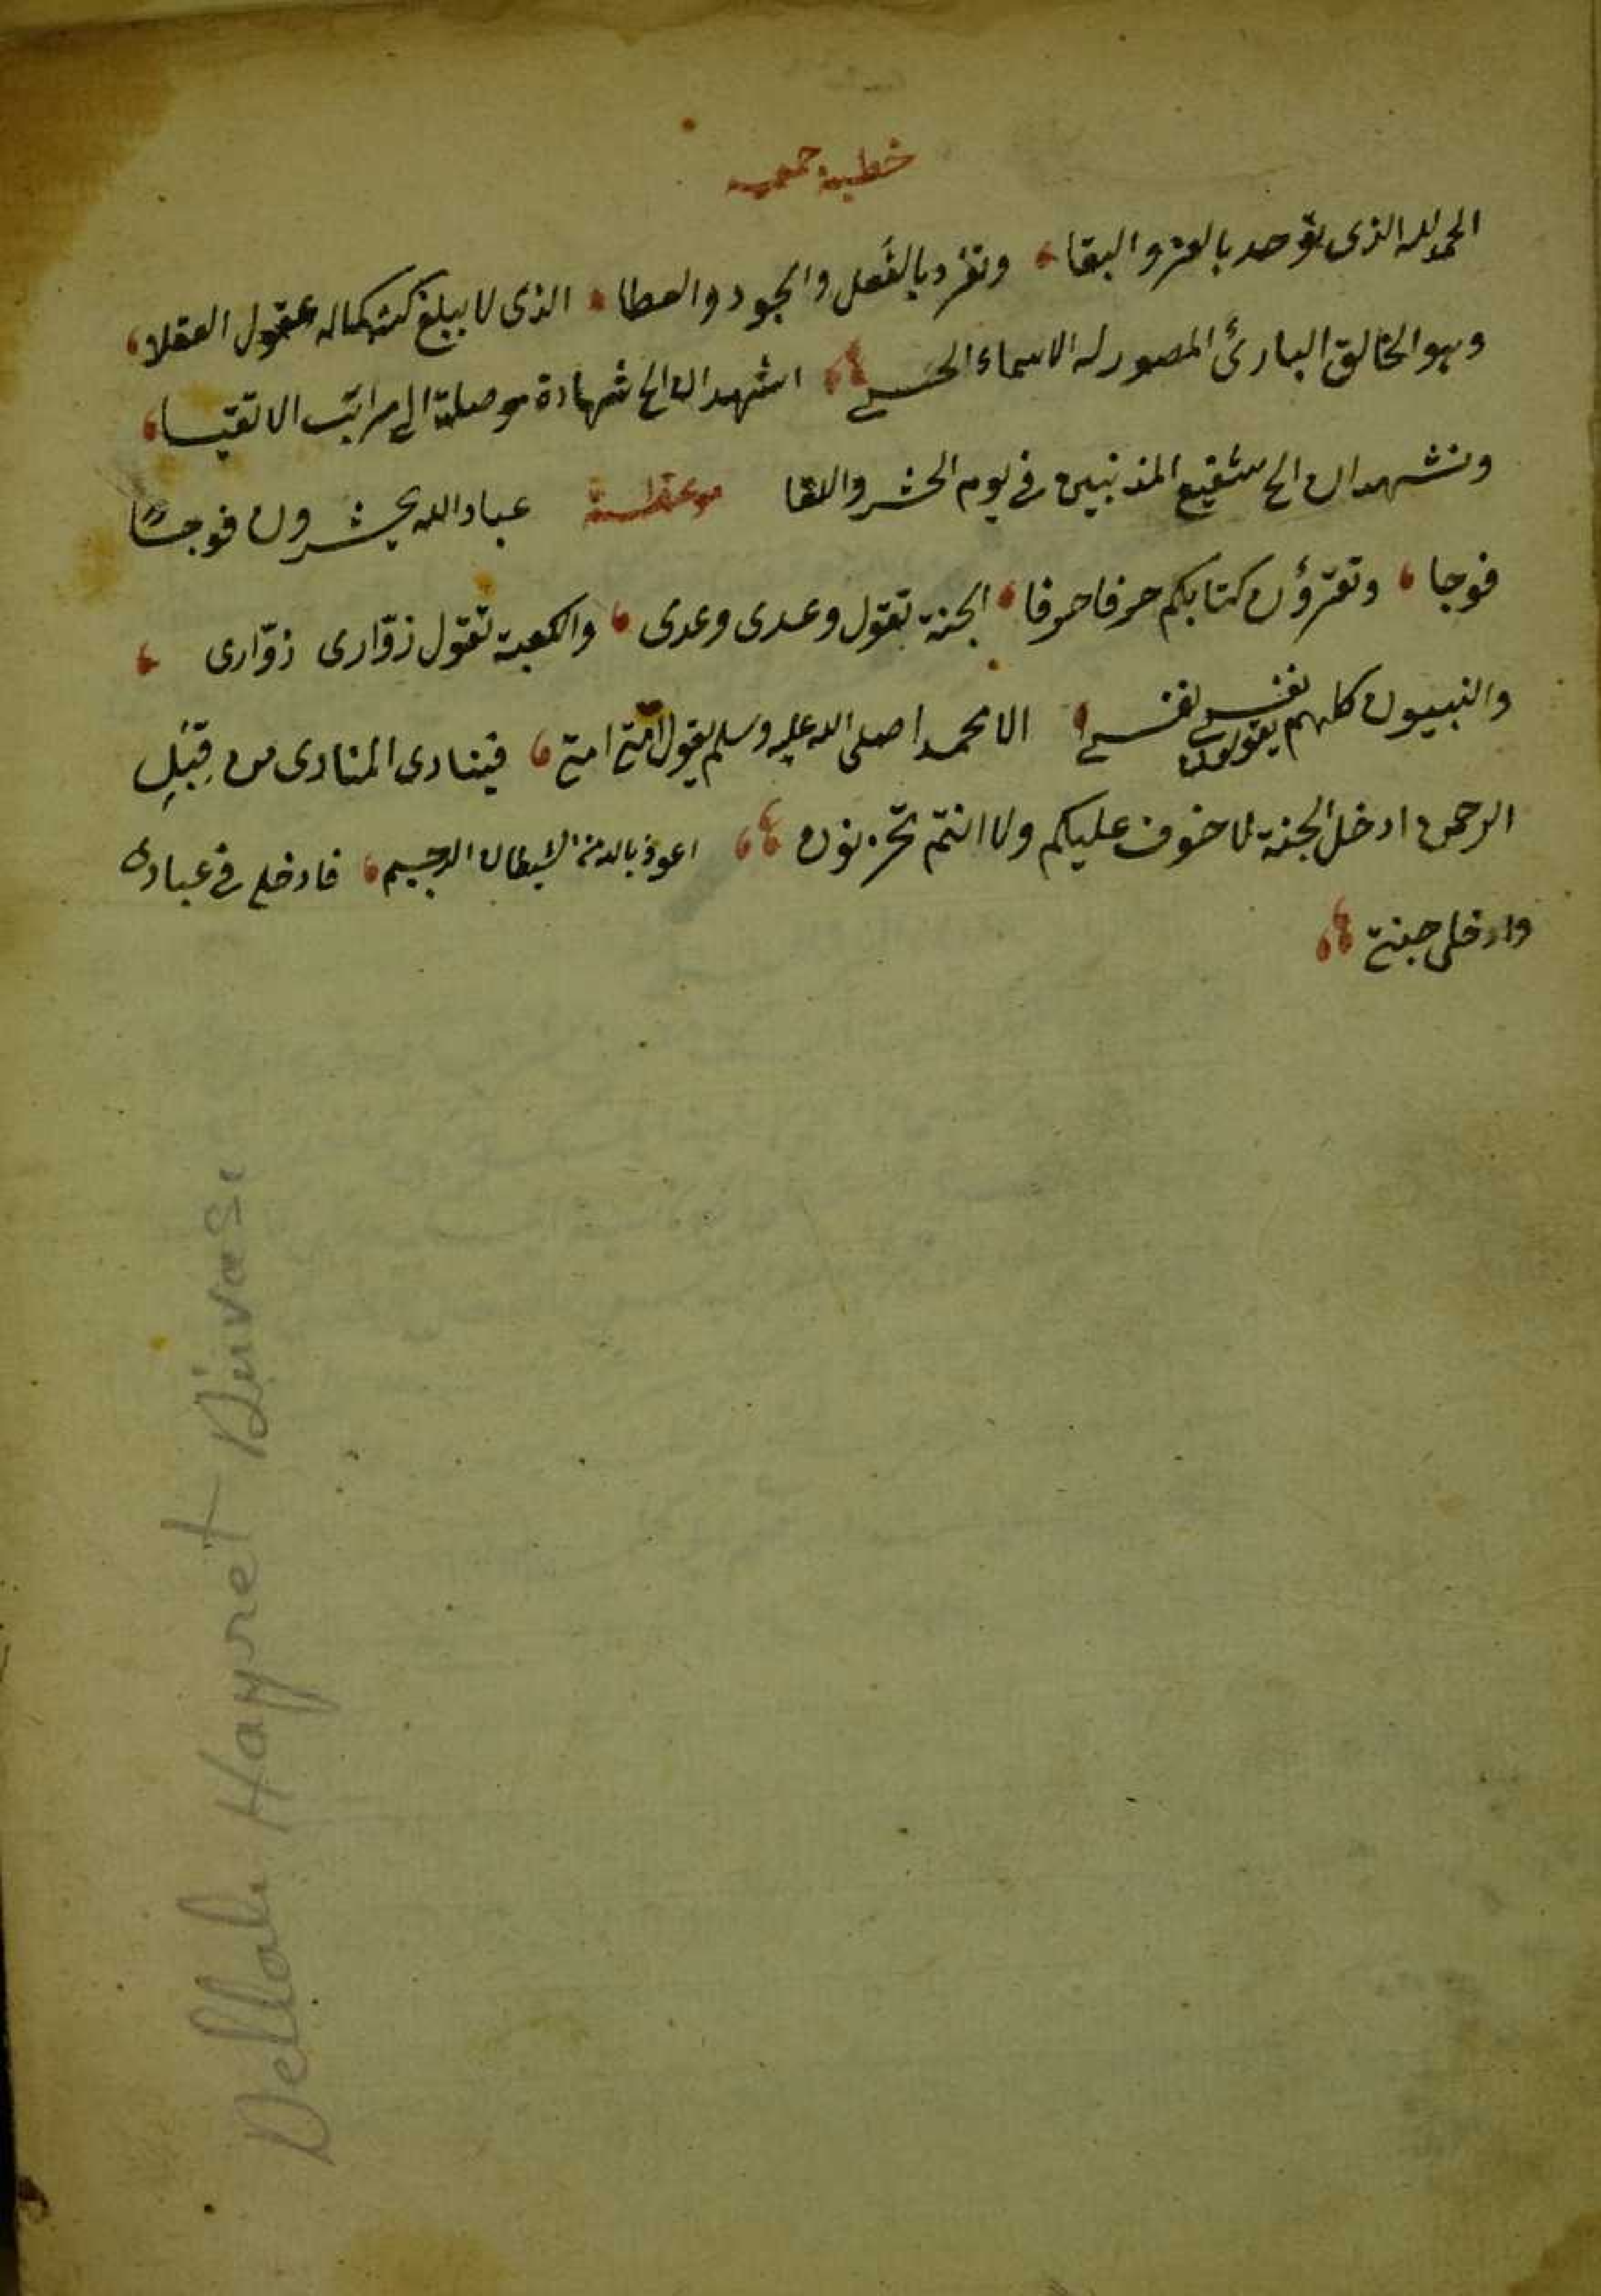 خطبة جمعه
الحمد لله الذى توحد بالعز والبقا، وتفرد بالفعل والجود والعطا، الذى لا يبلغ كنه كماله عقول العقلا،
وهو الخالق البارئ المصور له الاسماء الحسنى، اشهد ان الخ شهادة موصلة الى مراتب الاتقيا،
ونشهد ان الخ شفيع المذنبين فى يوم الحشر واللقا موعظة عباد الله يحشرون فوجًا
فوجا، وتقرؤن كتابكم حرفا حرفا، الجنة تقول وعدى وعدى، والكعبة تقول زوّارى زوّارى،
والنبيون كلهم يقولون نفسى نفسى، الا محمدا صلى الله عليه وسلم يقول امتى امتى، فينادى المنادى من قِبَلِ
الرحمن ادخل الجنة لا خوف عليكم ولا انتم تحزنون، اعوذ بالله من الشيطان الرجيم، فادخلى فى عبادى
وادخلى جنتى،
Dellali Hayret Divası